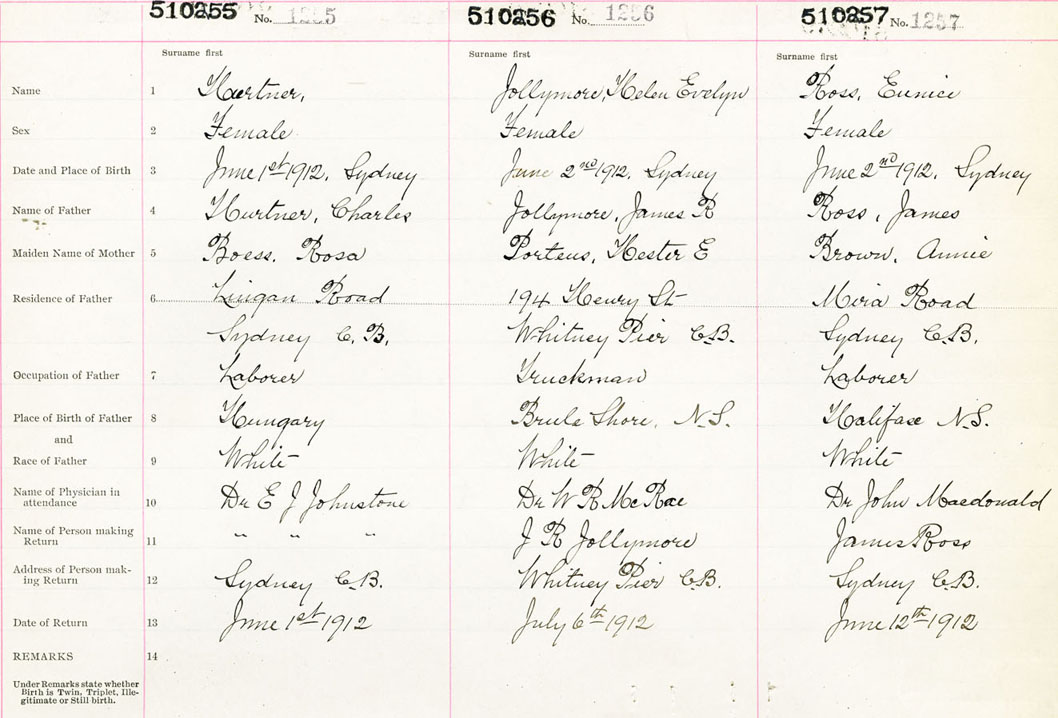 510255 No. 1255 510256 No. 1256 510257 No. 1257
Surname first Surname first Surname first
Name 1 Hurtner, Jollymore, Helen Evelyn Ross, Eunice
Sex 2 Female Female Female
Date and Place of Birth 3 June 1st 1912, Sydney June 2nd 1912, Sydney June 2nd 1912, Sydney
Name of Father 4 Hurtner, Charles Jollymore, James R Ross, James
Maiden Name of Mother 5 Boess, Rosa Porteus, Hester E Brown, Annie
Residence of Father 6 Lingan Road 194 Henry St Mira Road
Sydney C.B. Whitney Pier C.B. Sydney C.B.
Occupation of Father 7 Laborer Truckman Laborer
Place of Birth of Father 8 Hungary Brule Shore, N.S. Halifax N.S.
and
Race of Father 9 White White White
Name of Physician in
attendance 10 Dr E J Johnstone Dr W R McRae Dr John Macdonald
Name of Person making
Return 11 " " " J R Jollymore James Ross
Address of Person mak-
ing Return 12 Sydney C.B. Whitney Pier C.B. Sydney C.B.
Date of Return 13 June 1st 1912 July 6th 1912 June 12th 1912
REMARKS 14
Under Remarks state whether
Birth is Twin, Triplet, Ille-
gitimate or Still birth.